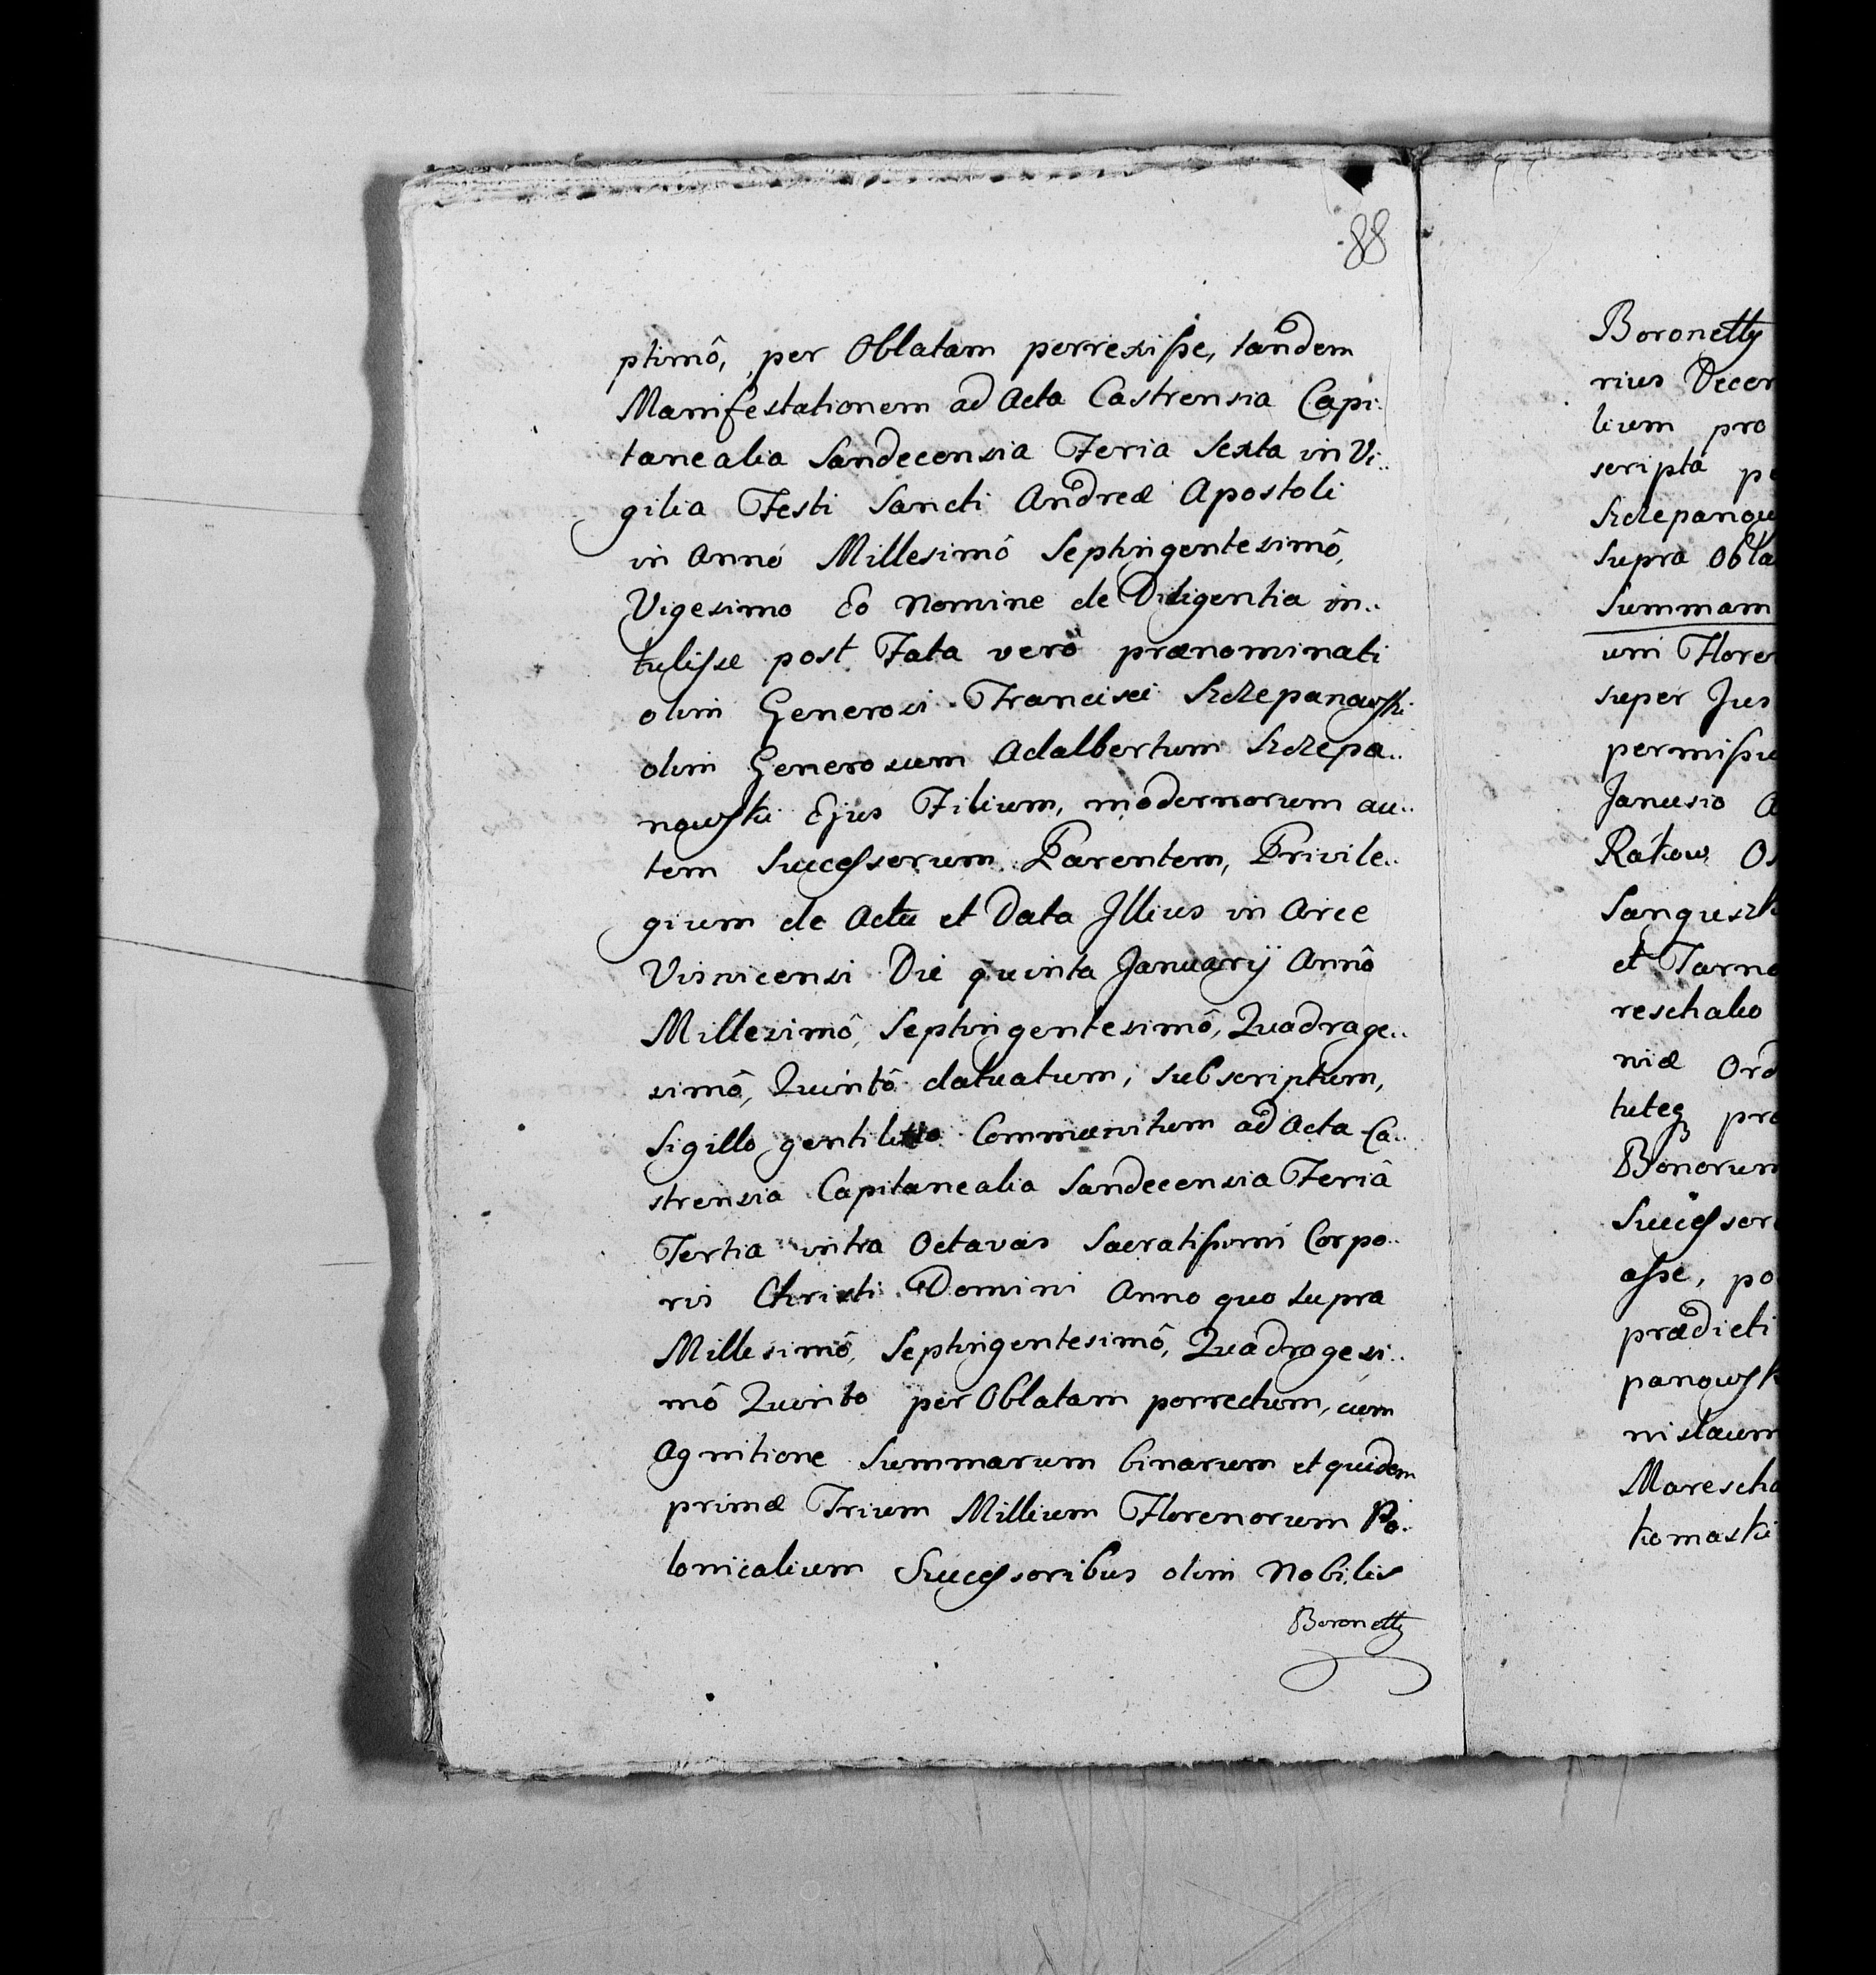 88
ptimô, per Oblatam perrexiſse, tandem
Manifestationem ad Acta Castrensia Capi..
tanealia Sandecensia Feria Sexta in Vi..
gilia Festi Sancti Andreæ Apostoli
in Anno Millesimô Septingentesimô,
Vigesimo Eo Nomine de Diligentia in..
tuliſse post Fata verò prænominati
olim Generosi Francisci Szczepanowski
olim Generosum Adalbertum Szczepa..
nowski Ejus Filium, modernorum au..
tem Succeſsorum Parentem, Privile..
gium de Actu et Data Illius in Arce
Visnicensi Die quinta Januarij Annô
Millesimô, Septingentesimô, Quadrage..
simô, Quintô datuatum, subscriptum,
Sigillo gentilitio Communitum ad Acta Ca..
strensia Capitanealia Sandecensia Feriâ
Tertia intra Octavas Sacratiſsimi Corpo..
ris Christi Domini Anno quo supra
Millesimô, Septingentesimô, Quadragesi..
mô Quinto per Oblatam porrectum, cum
Agnitione Summarum binarum et quidem
primæ Trium Millium Florenorum Po..
lonicalium Succeſsoribus olim Nobilis
Boronetty
Boronetty
rius Decem
lium pro
scripta pe
Szczepanow
Supra Obla
Summam
um Floren
super Jus
permiſsu
Janusio A
Rakow Os
Sanguszk
et Tarno
reschalco
niæ Ord
tuteq pro
Bonorum
Succeſsor
aſse, po
prædicti
panowsk
nislaum
Marescha
komaski